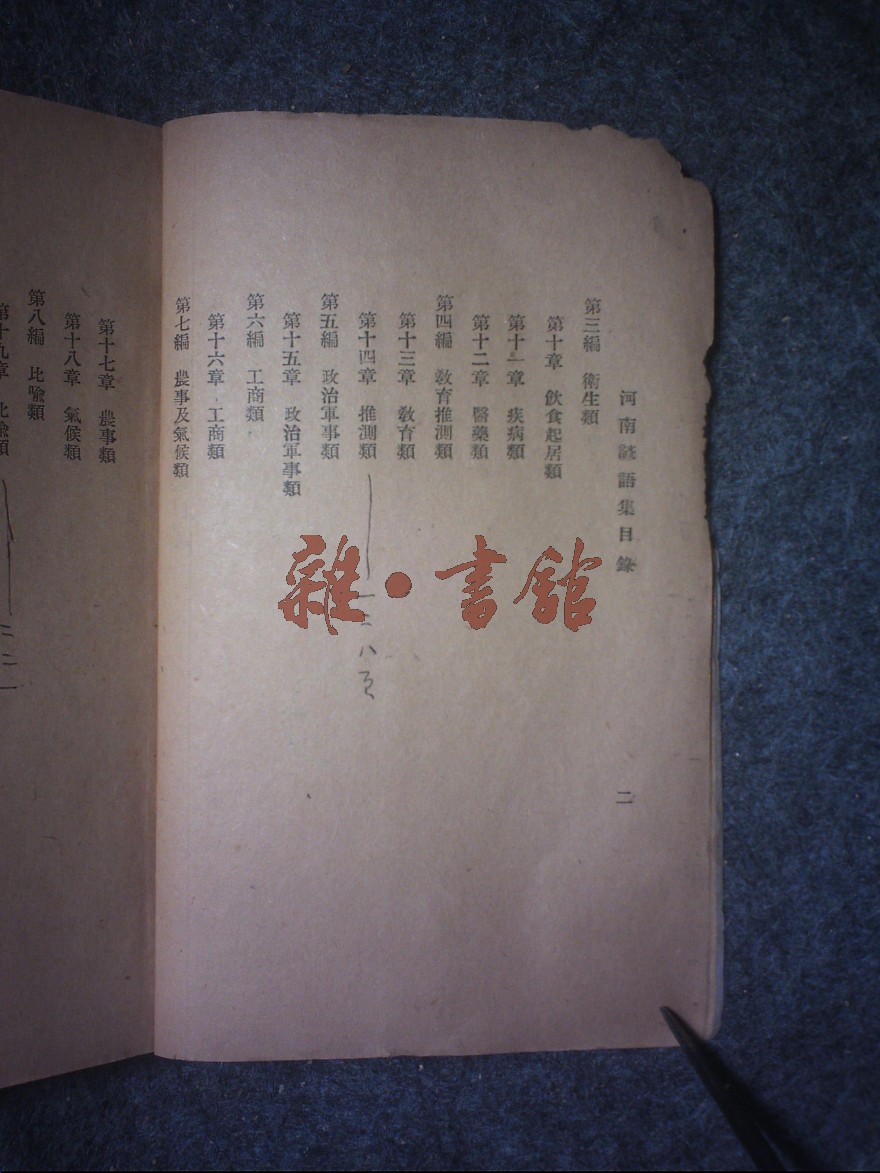 河南諺語集目錄
二
第三編 衛生類
第十章 飲食起居類
第十一章 疾病類
第十二章 醫藥類
第四編 教育推測類
第十三章 教育類
第十四章 推測類
一三八頁
第五編 政治軍事類
第十五章 政治軍事類
第六編 工商類
第十六章 工商類
第七編 農事及氣候類
第十七章 農事類
第十八章 氣候類
第八編 比喻類
第十九章 比喻類
雜·書館